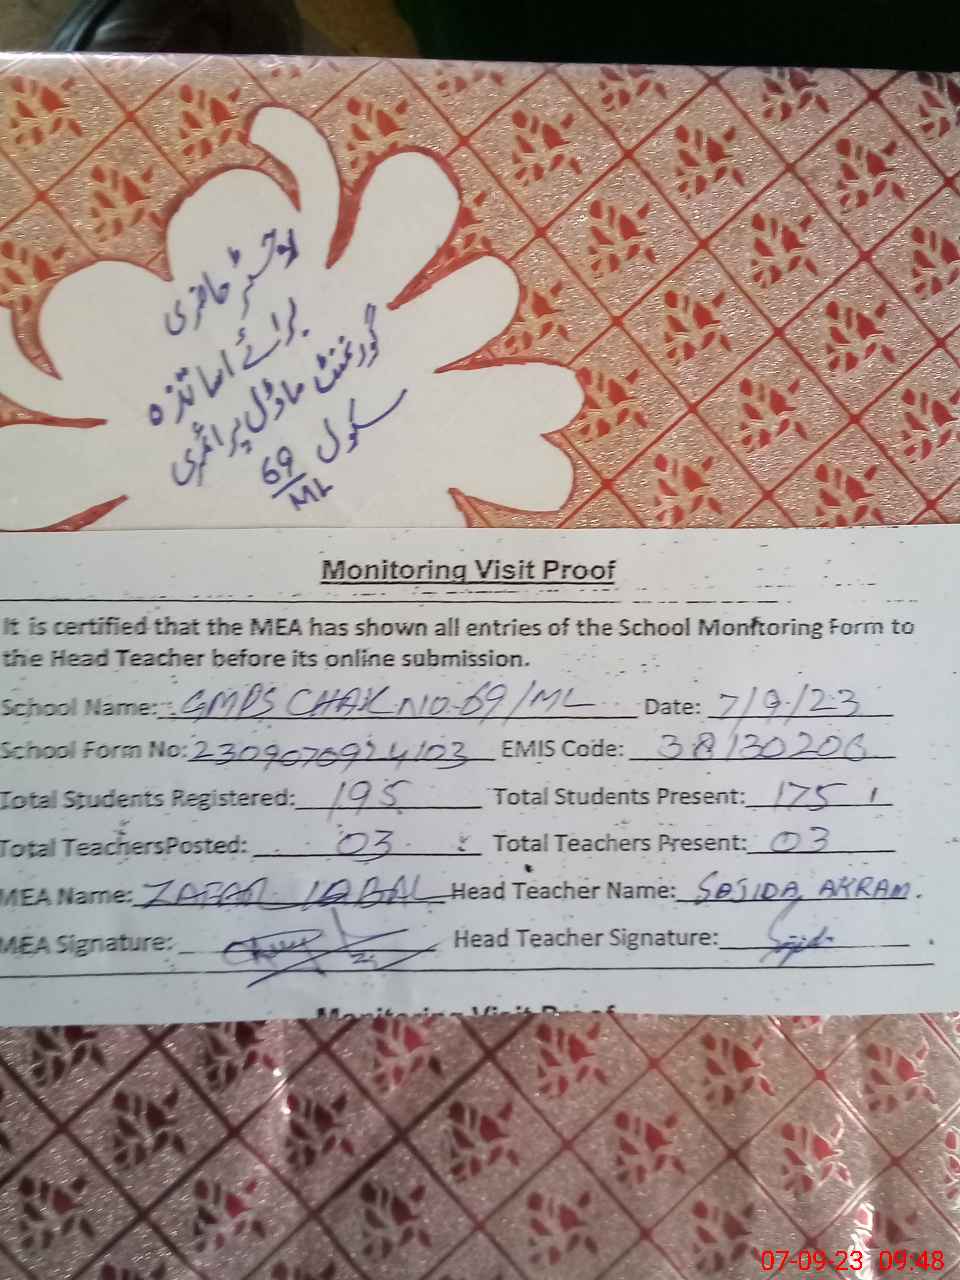 رجسٹر حاضری
برائے اساتذہ
گورنمنٹ ماڈل پرائمری
سکول 69/ML
Monitoring Visit Proof
It is certified that the MEA has shown all entries of the School Monitoring Form to
the Head Teacher before its online submission.
School Name: GMPS CHAK NO. 69/ML Date: 7/9/23
School Form No: EMIS Code: 38130206
Total Students Registered: 195 Total Students Present: 175
Total TeachersPosted: 03 Total Teachers Present: 03
MEA Name: ZAFAR IQBAL Head Teacher Name: SAJIDA AKRAM.
MEA Signature: Head Teacher Signature:
Monitoring Visit Proof
07-09-23 09:48